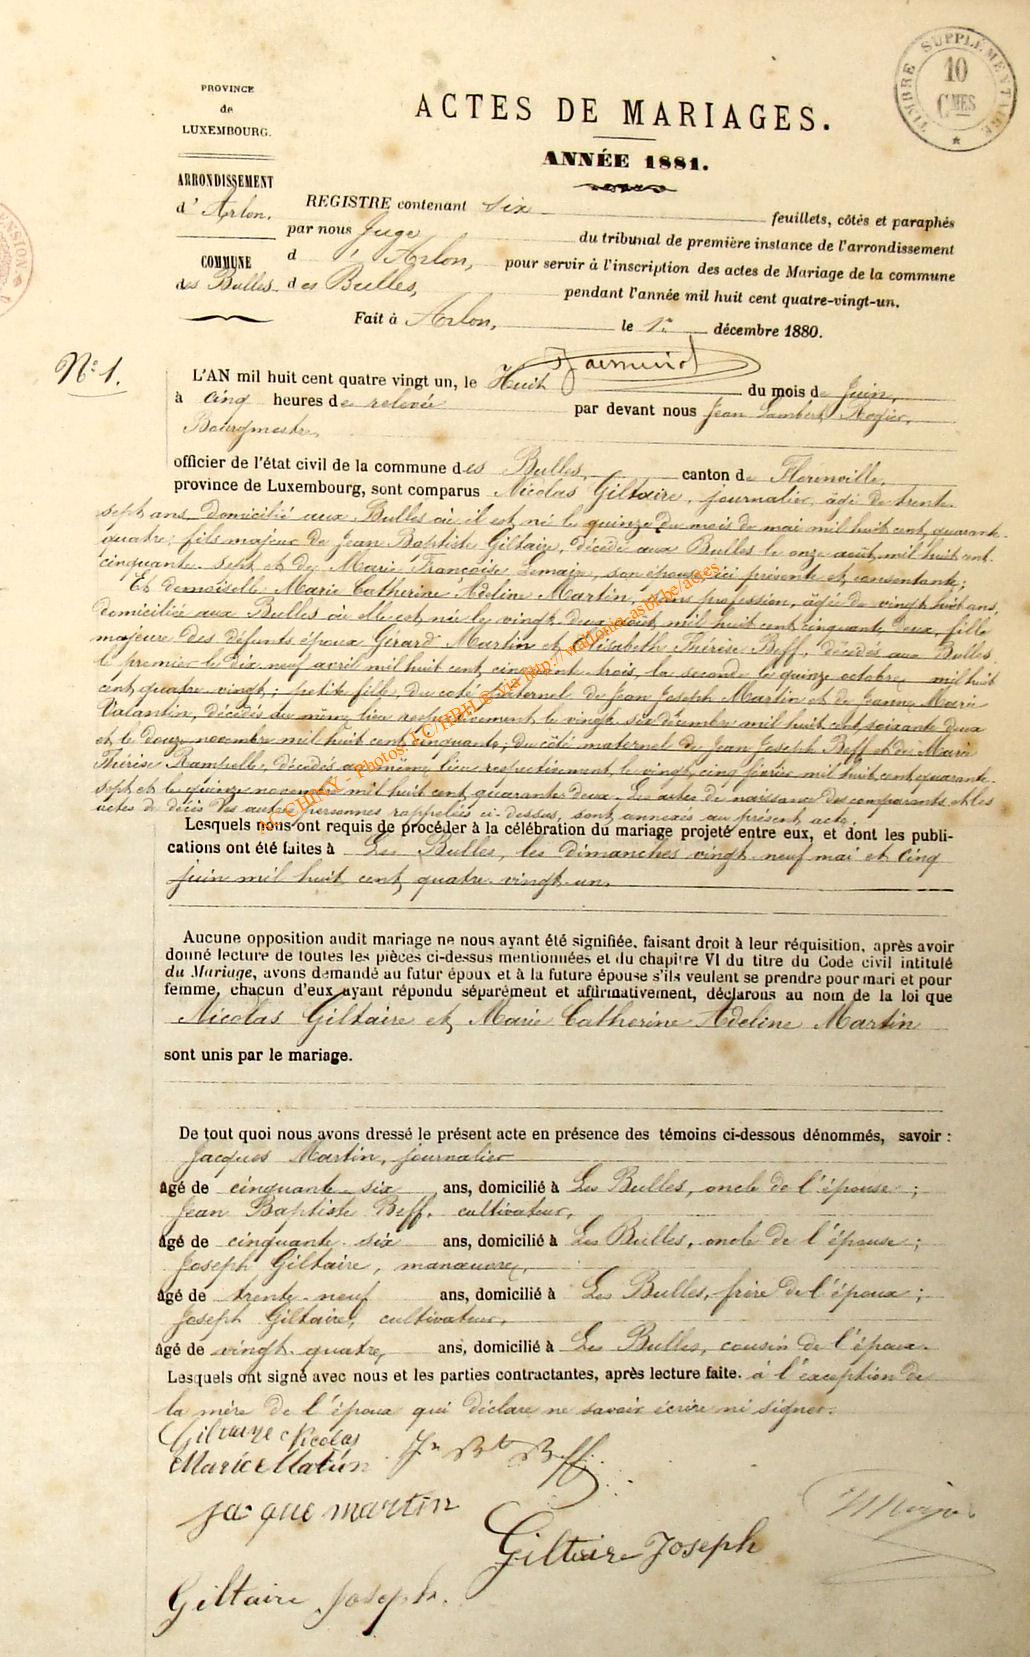 TIMBRE SUPPLÉMENTAIRE
10
CMES
PROVINCE
de
LUXEMBOURG.
ACTES DE MARIAGES.
ANNÉE 1881.
ARRONDISSEMENT
d' Arlon.
COMMUNE
des Bulles.
REGISTRE contenant six feuillets, côtés et paraphés
par nous Juge du tribunal de première instance de l'arrondissement
d' Arlon, pour servir à l'inscription des actes de Mariage de la commune
des Bulles, pendant l'année mil huit cent quatre-vingt-un.
Fait à Arlon, le 1er décembre 1880.
No 1.
L'AN mil huit cent quatre vingt un, le Huit du mois de Juin,
à cinq heures de relevée par devant nous Jean Lambert Rogier,
Bourgmestre,
officier de l'état civil de la commune des Bulles, canton de Florenville,
province de Luxembourg, sont comparus Nicolas Giltaire, journalier, âgé de trente
sept ans, domicilié aux Bulles où il est né le quinze du mois de mai mil huit cent quarante-
quatre; fils majeur de Jean Baptiste Giltaire, décédé aux Bulles le onze août mil huit cent
cinquante-sept et de Marie Françoise Lemaire, son épouse ici présente et consentante;
Et demoiselle Marie Catherine Adeline Martin, sans profession, âgée de vingt huit ans,
domiciliée aux Bulles où elle est née le vingt-deux août mil huit cent cinquante deux, fille
majeure des défunts époux Gérard Martin et Elisabeth Thérèse Beff, décédés aux Bulles
le premier le dix-neuf avril mil huit cent cinquante trois, la seconde le quinze octobre mil huit
cent quatre-vingt; petite fille du coté paternel de Jean Joseph Martin et de Jeanne Marie
Valantin, décédés au même lieu respectivement le vingt six décembre mil huit cent soixante deux
et le douze novembre mil huit cent cinquante; du côté maternel de Jean Joseph Beff et de Marie
Thérèse décédés au même lieu respectivement le vingt-cinq février mil huit cent quarante-
sept et le quinze novembre mil huit cent quarante-deux. Les actes de naissance des comparants et les
actes de décès des autres personnes rappelées ci-dessus, sont annexés au présent acte.
Lesquels nous ont requis de procéder à la célébration du mariage projeté entre eux, et dont les publi-
cations ont été faites à Les Bulles, les dimanches vingt-neuf mai et cinq
juin mil huit cent quatre-vingt-un.
Aucune opposition audit mariage ne nous ayant été signifiée, faisant droit à leur réquisition, après avoir
donné lecture de toutes les pièces ci-dessus mentionnées et du chapitre VI du titre du Code civil intitulé
du Mariage, avons demandé au futur époux et à la future épouse s'ils veulent se prendre pour mari et pour
femme, chacun d'eux ayant répondu séparément et affirmativement, déclarons au nom de la loi que
Nicolas Giltaire et Marie Catherine Adeline Martin
sont unis par le mariage.
De tout quoi nous avons dressé le présent acte en présence des témoins ci-dessous dénommés, savoir :
Jacques Martin, journalier
âgé de cinquante-six ans, domicilié à Les Bulles, oncle de l'épouse ;
Jean Baptiste Beff, cultivateur,
âgé de cinquante-six ans, domicilié à Les Bulles, oncle de l'épouse ;
Joseph Giltaire, manœuvre,
âgé de trente-neuf ans, domicilié à Les Bulles, frère de l'époux ;
Joseph Giltaire, cultivateur,
âgé de vingt-quatre ans, domicilié à Les Bulles, cousin de l'époux.
Lesquels ont signé avec nous et les parties contractantes, après lecture faite. à l'exception de
la mère de l'époux qui déclare ne savoir écrire ni signer.
Giltaire Nicolas
Marie Matin
Jn Bte Beff
jacque martin
Giltaire Joseph
Giltaire Joseph.
AC CHINY - Photos LC/HBHLS via http://wallonia-asbl.be/actes